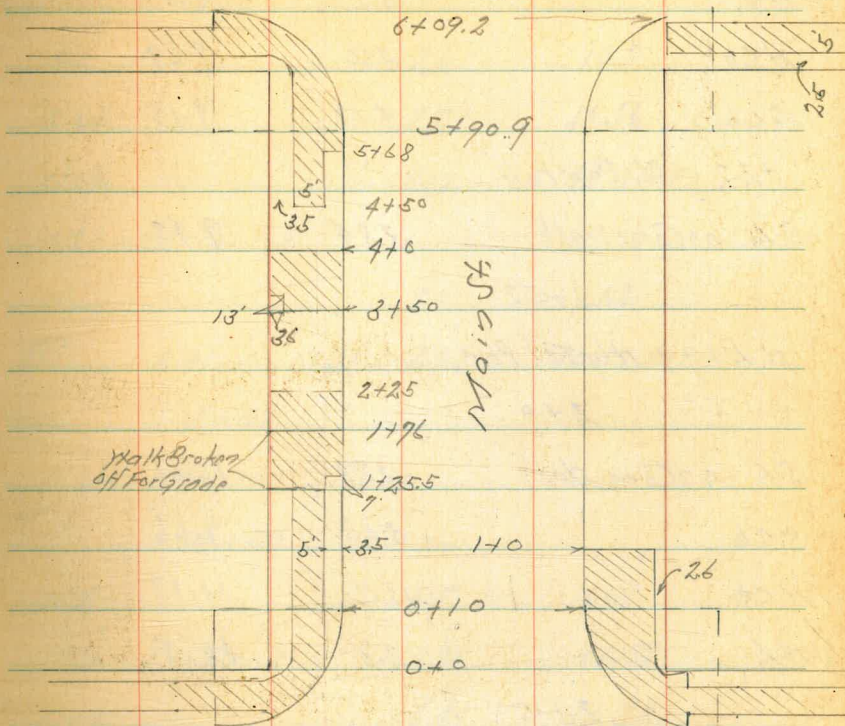 6+09.2
5
2.5
5+90.9
5+68
5'
3.5
4+50
4+0
13'
36
3+50
2+25
1+76
Walk Broken
off For Grade
1+25.5
7'
5'
3.5
1+0
2.6
0+10
0+0